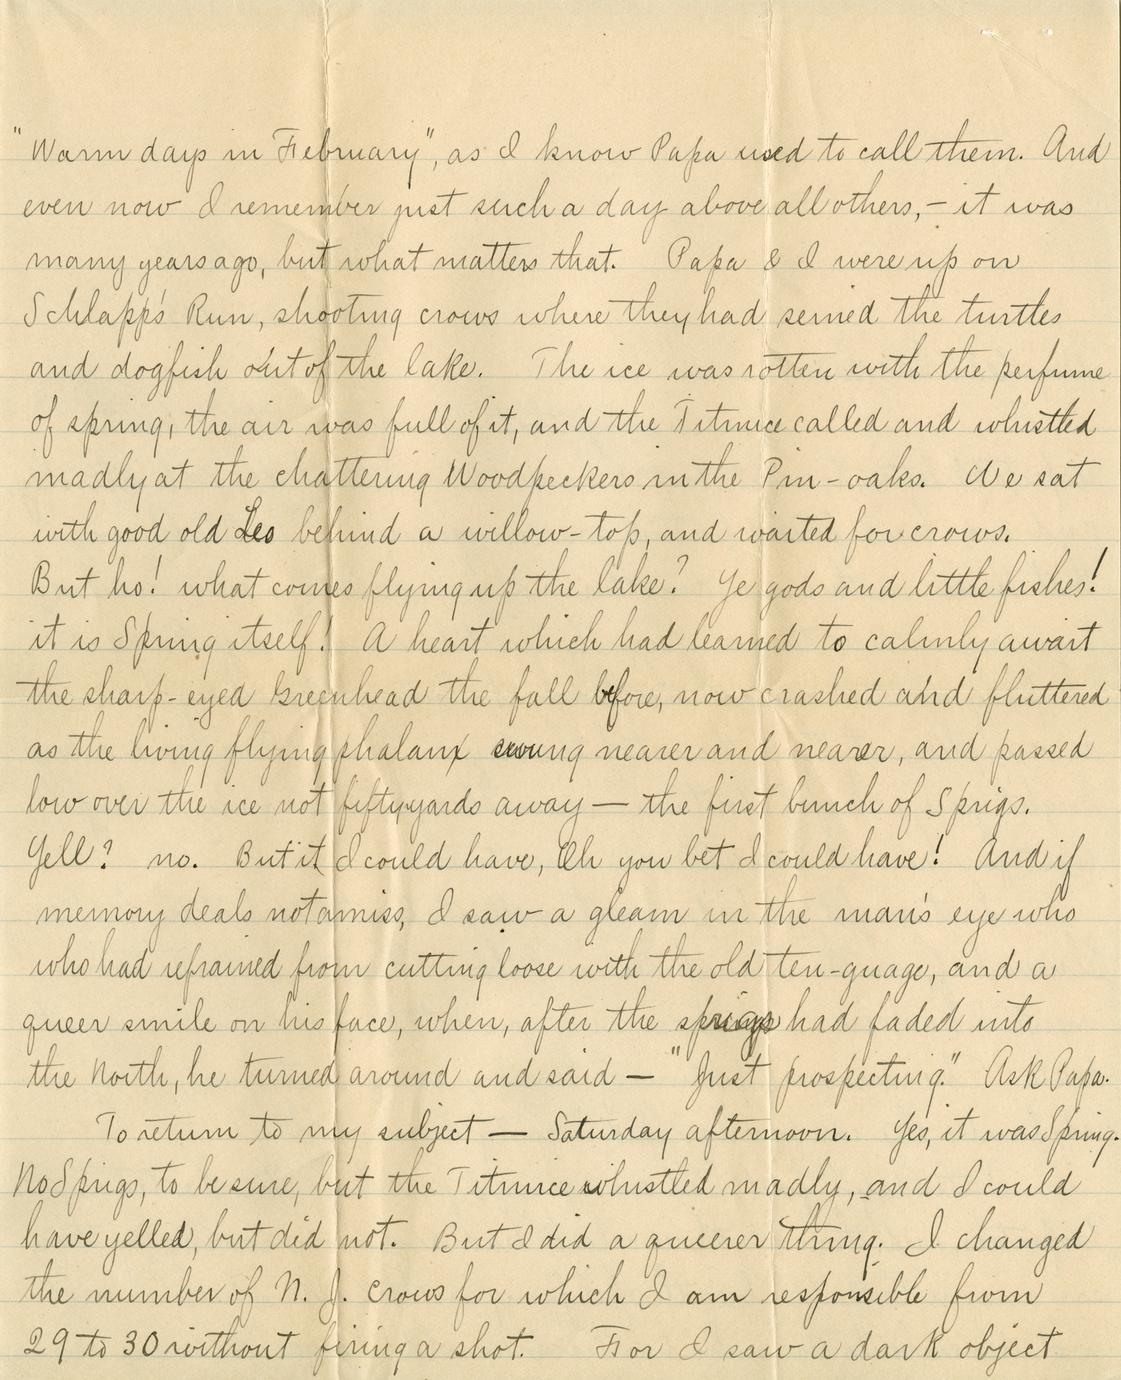 "Warm days in February", as I know Papa used to call them. And
even now I remember just such a day above all others, – it was
many years ago, but what matters that. Papa & I were up on
Schlapp's Run, shooting crows where they had seined the turtles
and dogfish out of the lake. The ice was rotten with the perfume
of spring, the air was full of it, and the Titmice called and whistled
madly at the chattering Woodpeckers in the Pin-oaks. We sat
with good old Leo behind a willow-top, and waited for crows.
But ho! what comes flying up the lake? Ye gods and little fishes!
it is Spring itself! A heart which had learned to calmly await
the sharp-eyed Greenhead the fall before, now crashed and fluttered
as the living flying phalanx swung nearer and nearer, and passed
low over the ice not fifty yards away — the first bunch of Sprigs.
Yell? no. But it I could have, Oh you bet I could have! And if
memory deals not amiss, I saw a gleam in the man's eye who
who had refrained from cutting loose with the old ten-guage, and a
queer smile on his face, when, after the sprigs had faded into
the North, he turned around and said — "Just prospecting." Ask Papa.
To return to my subject — Saturday afternoon. Yes, it was Spring.
No Sprigs, to be sure, but the Titmice whistled madly, and I could
have yelled, but did not. But I did a queerer thing. I changed
the number of N. J. crows for which I am responsible from
29 to 30 without firing a shot. For I saw a dark object